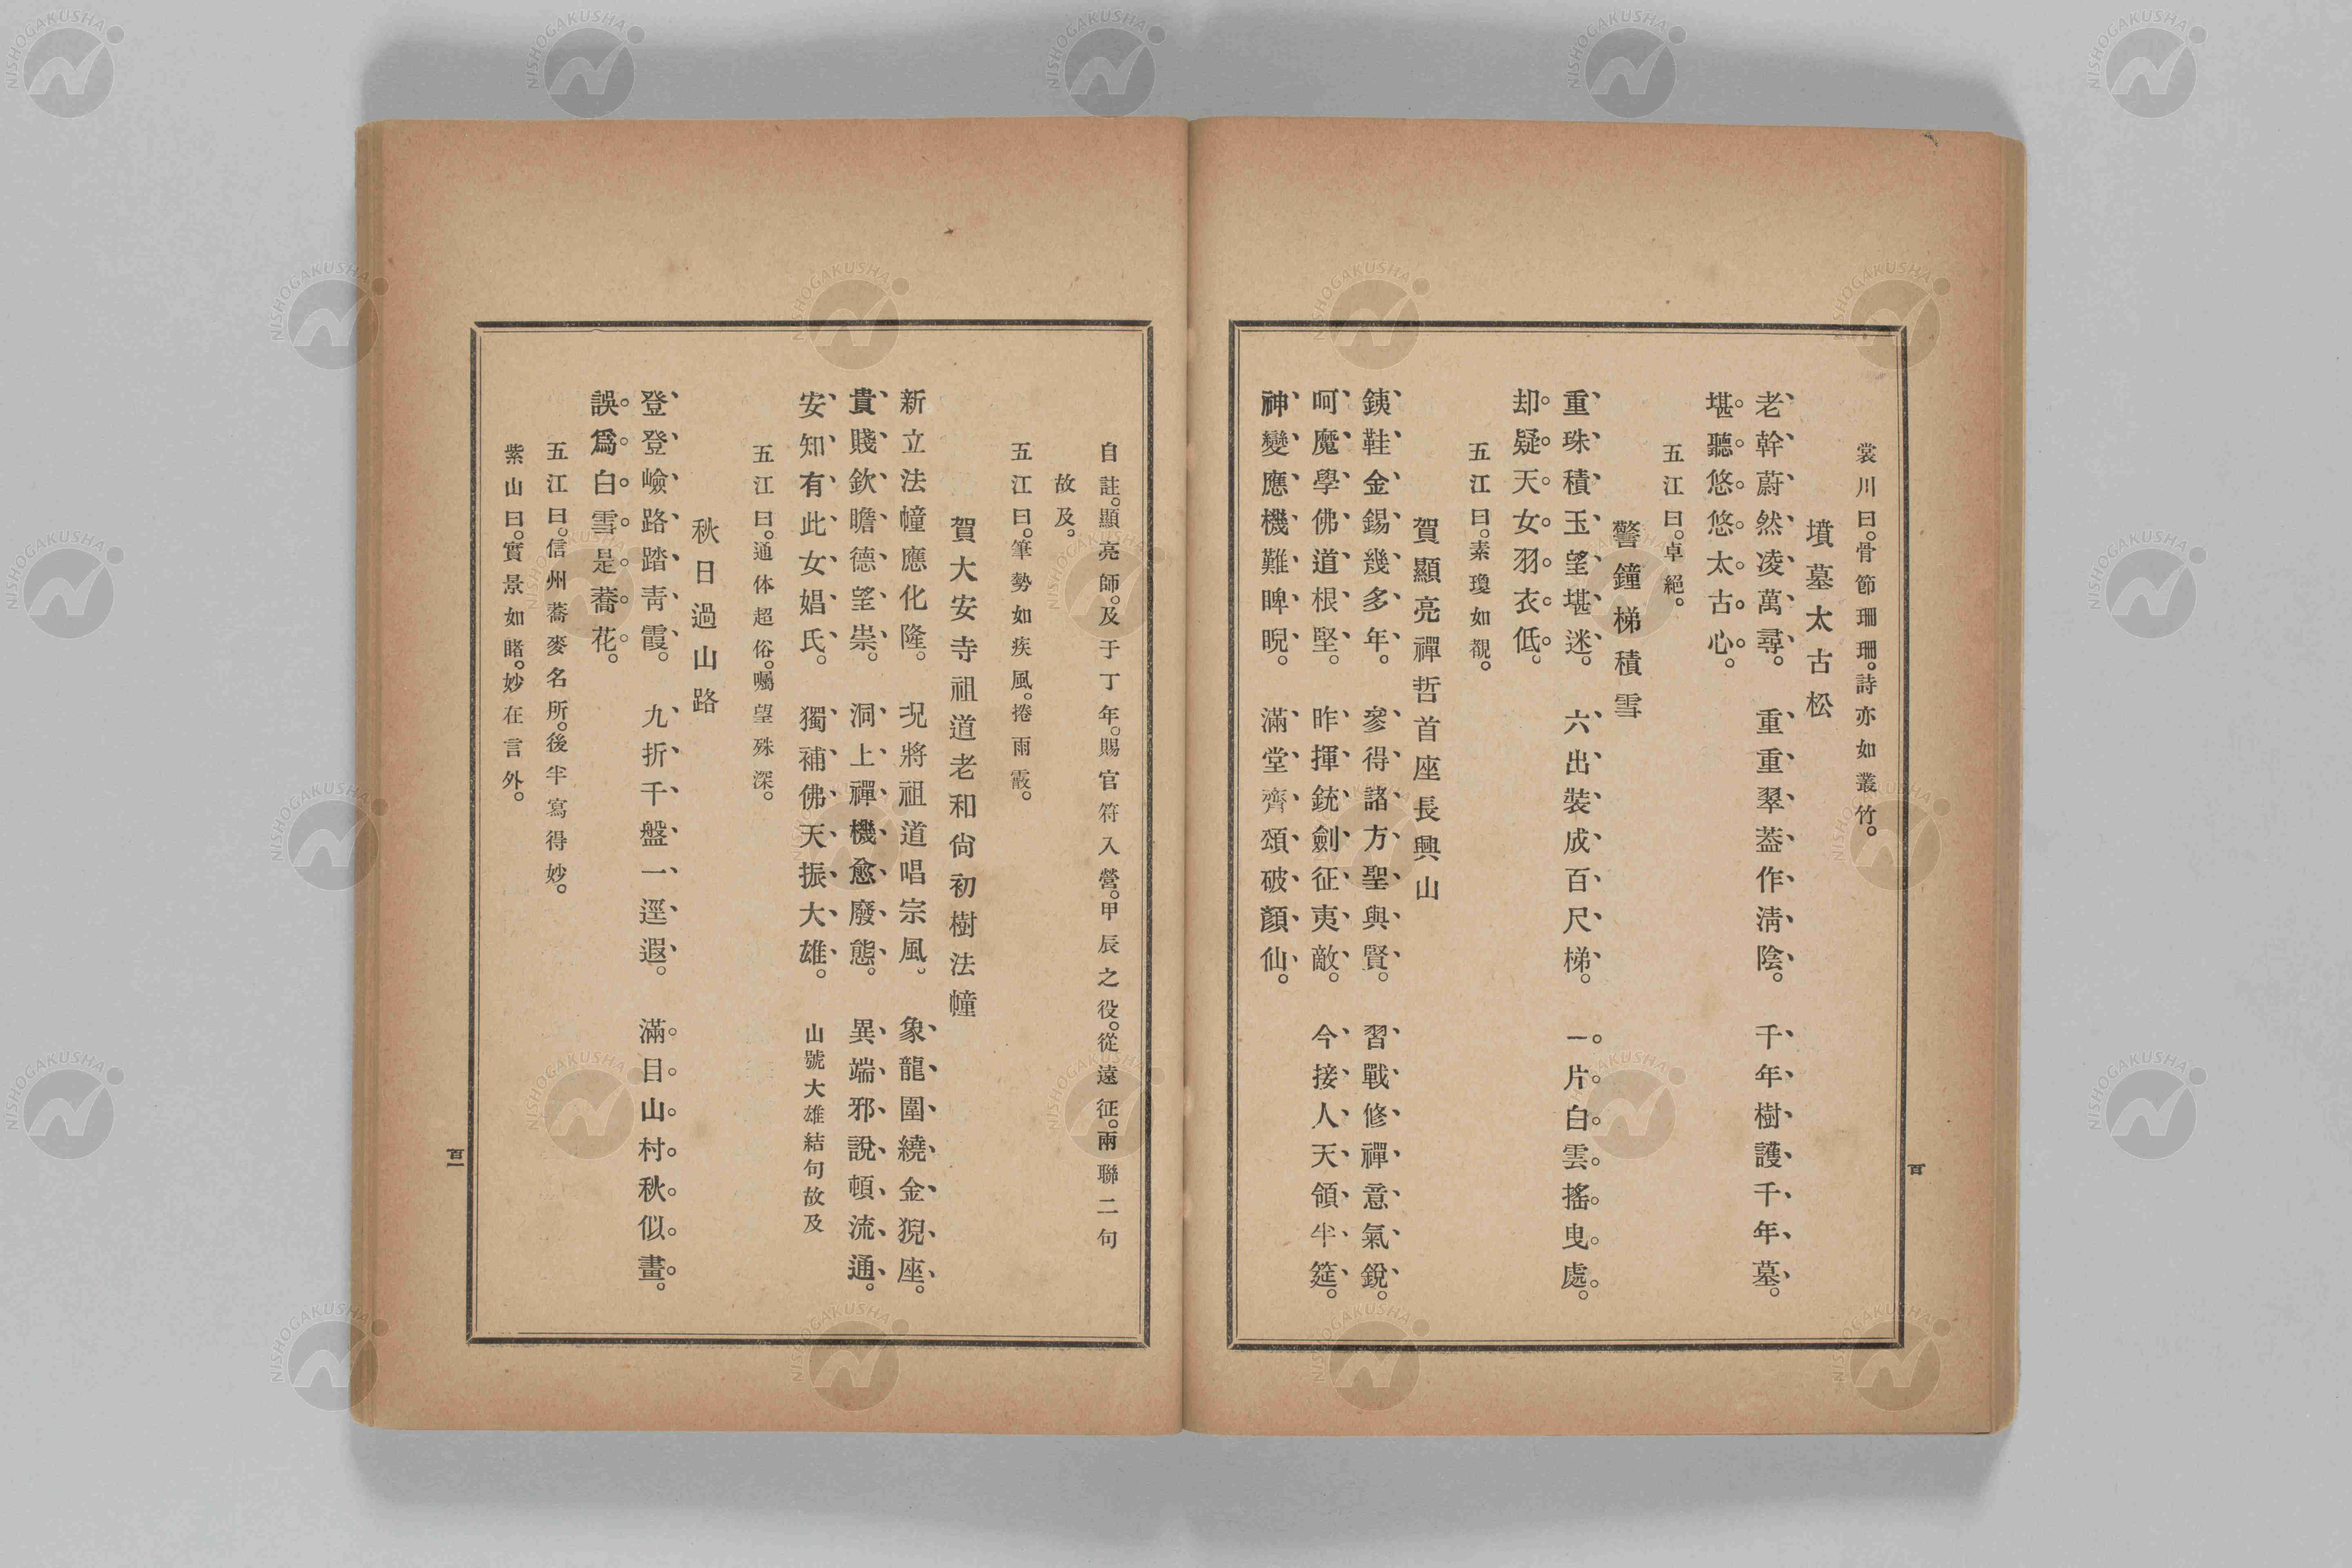 裳川曰。骨節珊珊。詩亦如叢竹。
墳墓太古松
老幹蔚然凌萬尋。重重翠葢作淸陰。千年樹護千年墓。
堪聽悠悠太古心。
五江曰。卓絕。
警鐘梯積雪
重珠積玉望堪迷。六出裝成百尺梯。一片白雲搖曳處。
却疑天女羽衣低。
五江曰。素瓊如覩。
賀顯亮禪哲首座長興山
銕鞋金錫幾多年。參得諸方聖與賢。習戰修禪意氣銳。
呵魔學佛道根堅。昨揮銃劍征夷敵。今接人天領半筵。
神變應機難睥睨。滿堂齊頌破顏仙。
百
自註。顯亮師。及于丁年。賜官符入營。甲辰之役。從遠征。兩聯二句
故及。
五江曰。筆勢如疾風。捲雨霰。
賀大安寺祖道老和尙初樹法幢
新立法幢應化隆。況將祖道唱宗風。象龍圍繞金猊座。
貴賤欽瞻德望崇。洞上禪機愈廢態。異端邪說頓流通。
安知有此女媧氏。獨補佛天振大雄。山號大雄結句故及
五江曰。通体超俗。囑望殊深。
秋日過山路
登登嶮路踏靑霞。九折千盤一逕遐。滿目山村秋似畫。
誤爲白雪是蕎花。
五江曰。信州蕎麥名所。後半寫得妙。
紫山曰。實景如睹。妙在言外。
百一
NISHOGAKUSHA